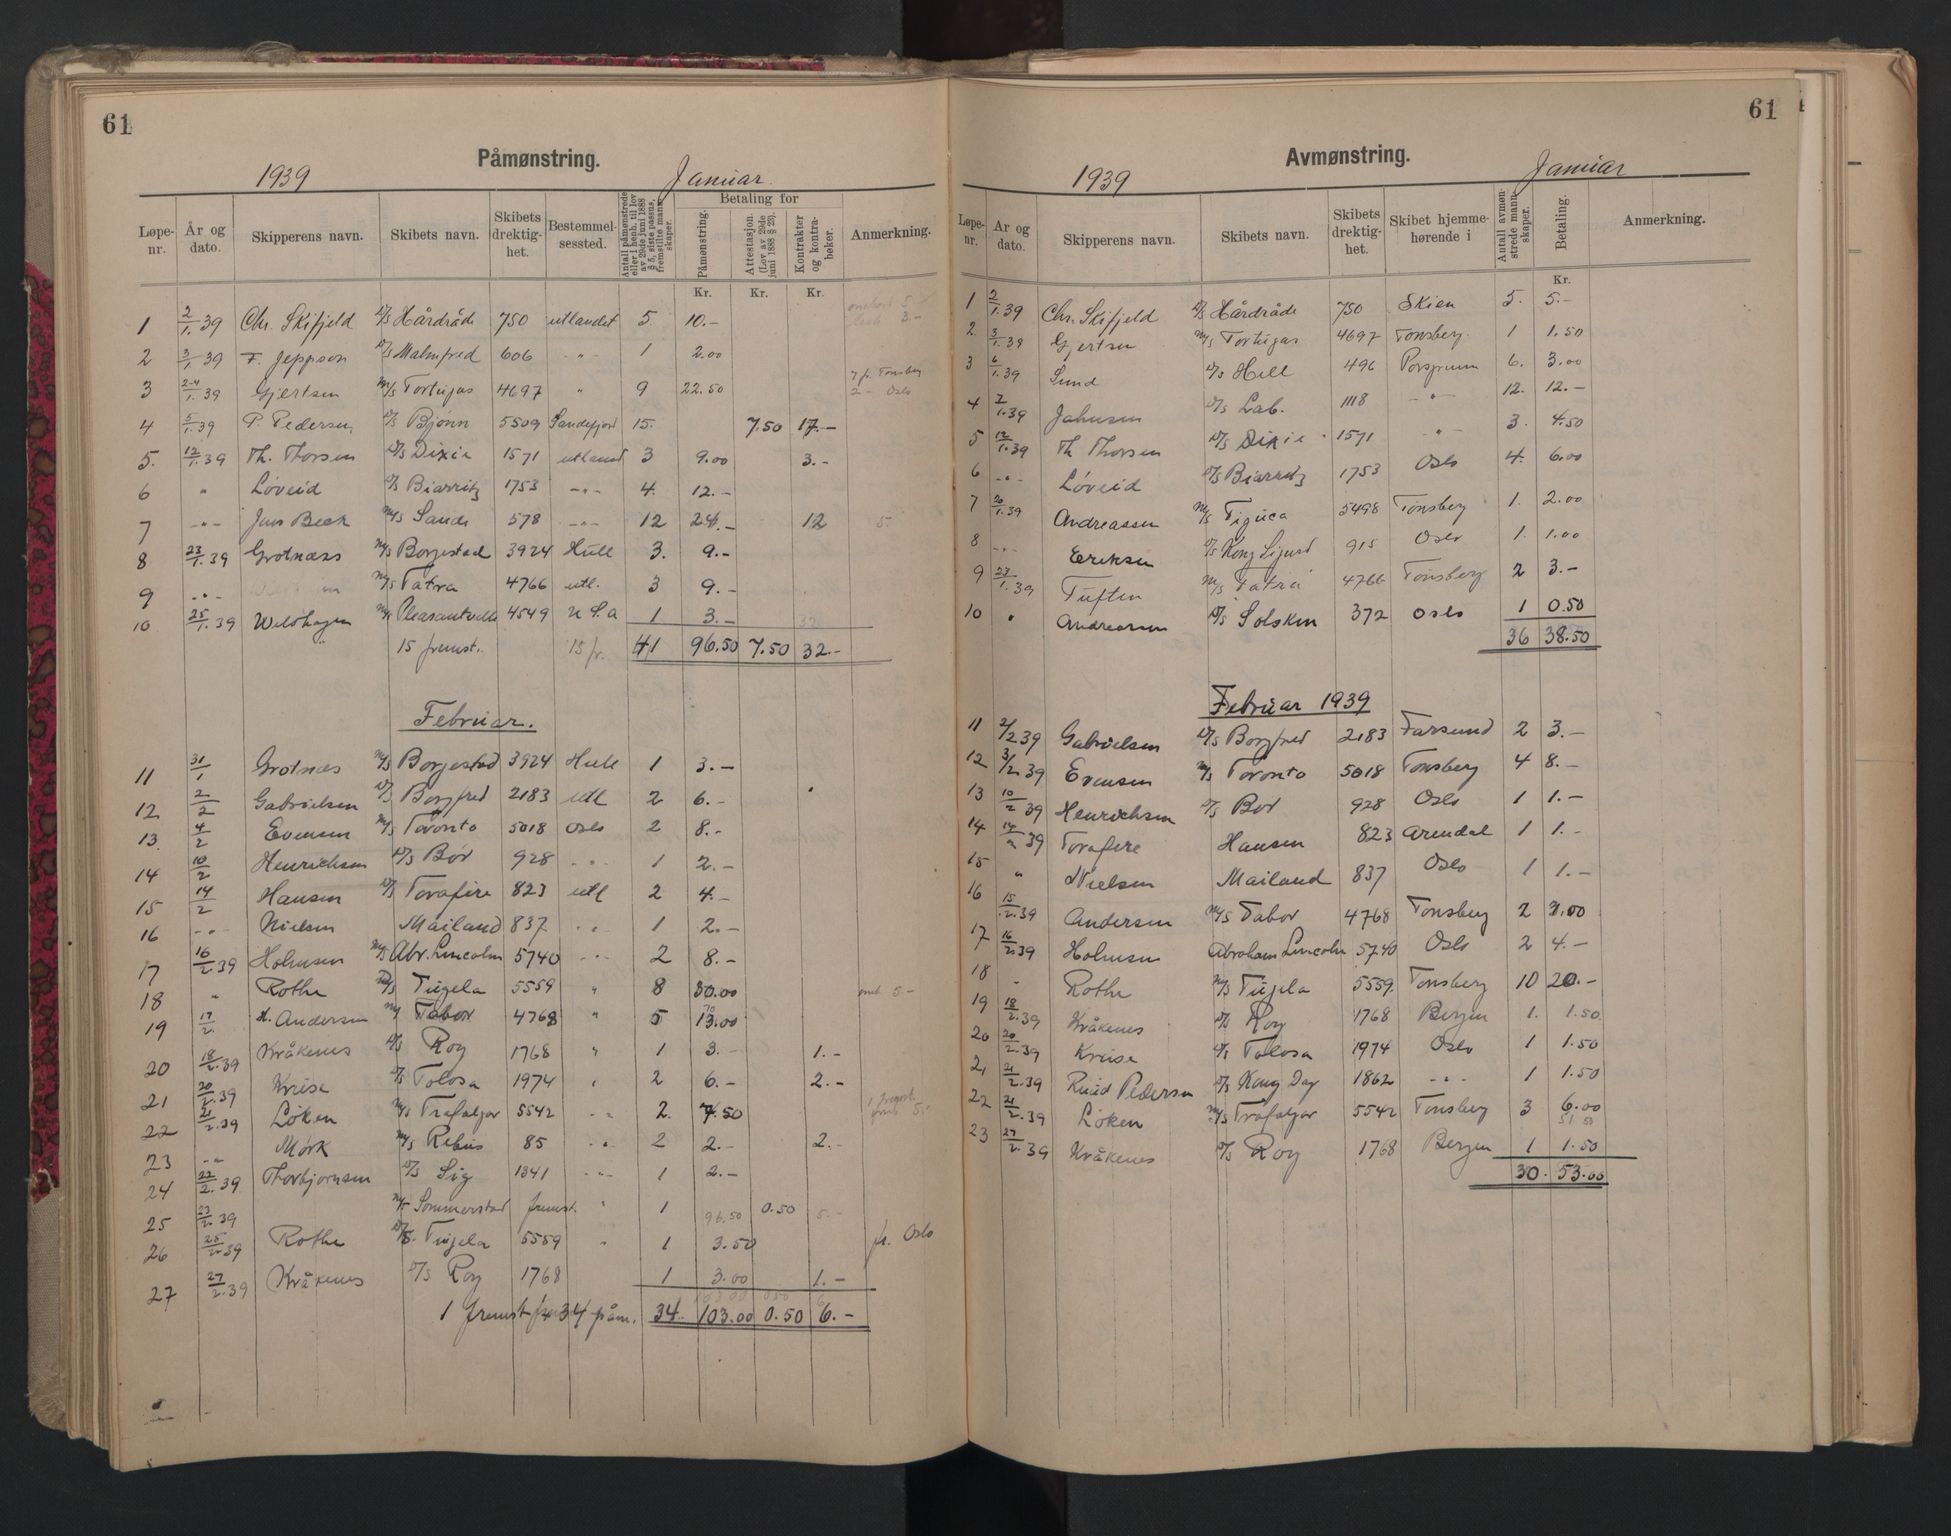 61
Påmønstring.
1939 Januar.
Løpe-nr. | År og dato. | Skipperens navn. | Skibets navn. | Skibets drektig-het. | Bestemmel-sessted. | Antall påmønstrede eller i henh. til lov av 29de juni 1888 § 5, siste passus, fremstilte mann-skaper. | Betaling for | Påmønstring. | Attestasjon. (Lov av 29de juni 1888 § 29). | Kontrakter og kontra-bøker. | Anmerkning.
Kr. Kr. Kr.
1 2/1.39 Chr. Skifjeld D/S Hårdråde 750 utlandet 5. 10.-
2 3/1.39 F. Jeppson D/S Malmfred 606 -"- 1 2.00
3 2-4/1.39 Gjertsen M/S Tortugas 4697 " 9 22.50 7 fr. Tønsberg 2 - Oslo
4 5/1.39 P. Pedersen D/S Bjønn 5509 Sandefjord 15. 7.50 17.-
5. 12/1.39 Th. Thorsen D/S Dixie 1571 utland 3 9.00 3.-
6 " Løveid D/S Biarritz 1753 -"- 4. 12.-
7 -"- Jens Beck M/S Sande 578 -"- 12 24.- 12 5.
8 23/1.39 Grotnæss M/S Borgestad 3924 Hull 3. 9.-
9 -"- M/S Tatra 4766 utl. 3 9.-
10 25/1.39 Wildhagen M/S Pleasantville 4549 U.S.a 1 3.- 32
15 fremst. 15 fr. 41 96.50 7.50 32.-
Februar.
11 31/1 Grotnæs M/S Borgestad 3924 Hull 1 3.-
12 2/2 Gabrielsen D/S Borgfred 2183 utl 2 6.-
13. 4/2 Evensen M/S Toronto 5018 Oslo 2 8.-
14 10/2 Henrichsen D/S Bør 928 -"- 1 2.-
15 14/2 Hansen D/S Torafire 823 utl 2 4.-
16 -"- Nielsen Mailand 837 -"- 1 2.-
17 16/2.39 Holmsen M/S Abr. Lincoln 5740 -"- 2 8.-
18 " Rothe M/S Tugela 5559 " 8 30.00 5.-
19 17/2. H. Andersen M/S Tabor 4768 " 5 13.00
20 18/2.39 Kråkenes D/S Roy 1768 " 1 3.- 1.-
21 20/2.39 Kruse D/S Tolosa 1974 " 2 6.- 2.-
22 21/2.39 Løken M/S Trafalgar 5542 -"- 2. 7.50
23 -"- Mørk M/S Rebus 85 -"- 2 2.- 2.-
24 22/2.39 Thorbjørnsen D/S Sig 1341 -"- 1 2.-
25 23/2.39 M/S Sommerstad fremst. " 1 96.50 0.50 5.-
26 25/2.39 Rothe D/S. Tugela 5559 " 1 3.50 fr. Oslo
27 27/2.39 Kråkenes D/S Roy 1768 1 3.00 1.-
1 fremst 34 påm. 34. 103.00 0.50 6.-
61
Avmønstring.
1939 Januar
Løpe-nr. | År og dato. | Skipperens navn. | Skibets navn. | Skibets drektig-het. | Skibet hjemme-hørende i | Antall avmøn-strede mann-skaper. | Betaling. | Anmerkning.
Kr.
1 2/1.39 Chr. Skifjeld D/S Hårdråde 750 Skien 5. 5.-
2. 3/1.39 Gjertsen M/S Tortugas 4697 Tønsberg. 1 1.50
3 6/1.39 Sund D/S Hell 496 Porsgrunn 6. 3.00
4 7/1.39 Jahnsen D/S Lab. 1118 -"- 12. 12.-
5 12/1.39 Th. Thorsen D/S Dixie 1571 -"- 3. 4.50
6 -"- Løveid D/S Biarritz 1753 Oslo 4. 6.00
7 20/1.39 Andreassen M/S Tiguca 5498 Tønsberg 1. 2.00
8 -"- Eriksen D/S Kong Sigurd 915 Oslo 1. 1.00
9 23/1.39 Tuften M/S Tatra 4766 Tønsberg 2 3.-
10 " Andreassen D/S Solskin 372 Oslo 1 0.50
36 38.50
Februar 1939
11 2/2 39 Gabrielsen D/S Borgfred 2183 Farsund 2 3.-
12 3/2 39 Evensen M/S Toronto 5018 Tønsberg 4 8.-
13 10/2 39 Henrichsen D/S Bør 928 Oslo 1 1.-
14 14/2 39 Torafire Hansen 823 Arendal 1 1.-
15 " Nielsen Mailand 837 Oslo 1 1.-
16 15/2.39 Andersen M/S Tabor 4768 Tønsberg 2 3.00
17 16/2.39 Holmsen Abraham Lincoln 5740 Oslo 2 4.-
18 " Rothe M/S Tugela 5559. Tønsberg 10 20.-
19 18/2.39 Kråkenes D/S Roy 1768 Bergen 1. 1.50.
20 20/2.39 Kruse D/S Tolosa 1974 Oslo 1 1.50
21 21/2.39 Ruud Pedersen D/S Kong Dag 1862 -"- 1 1.50
22 21/2.39 Løken M/S Trafalgar 5542 Tønsberg 3 6.00
51 50
23 27/2.39 Kråkenes D/S Roy 1768 Bergen 1 1.50
30. 53.00